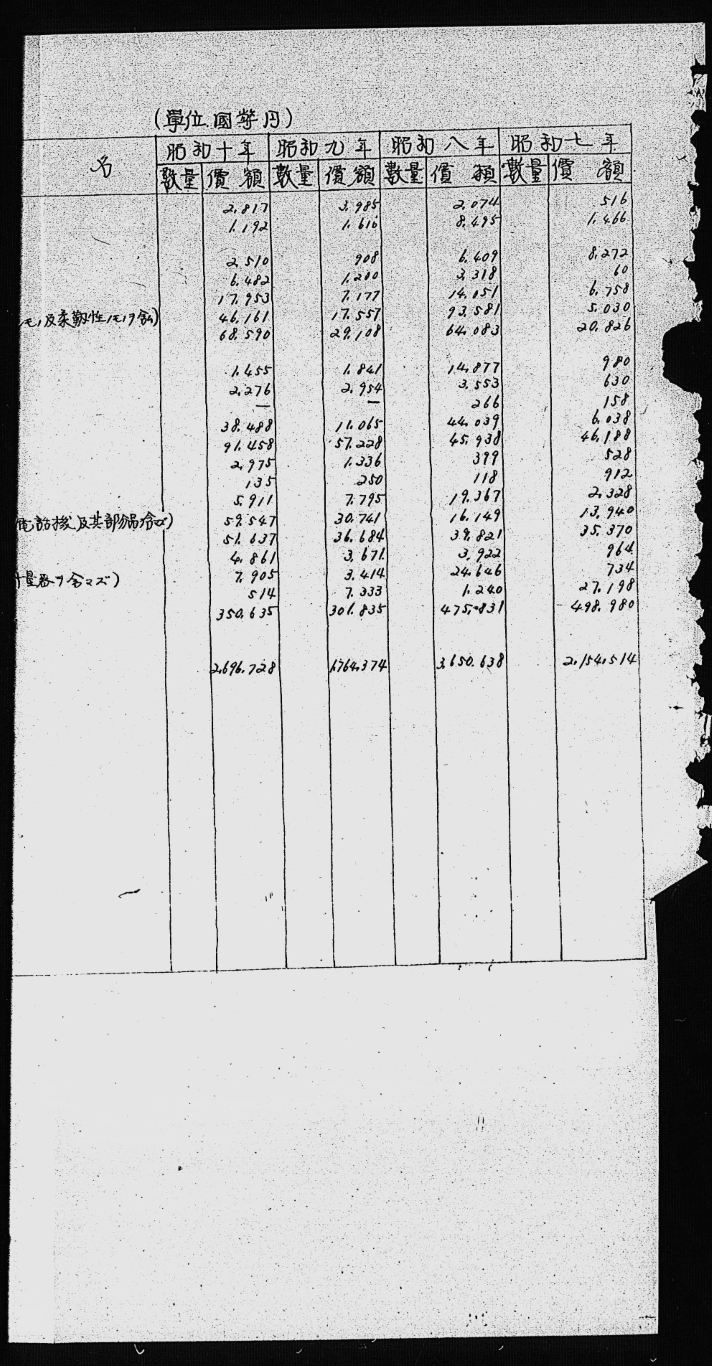 (單位 國幣円)
名 昭和十年 昭和九年 昭和八年 昭和七年
數量 價額 數量 價額 數量 價額 數量 價額
2.817 3.985 2.074 516
1.192 1.616 8.495 1.466
2.510 908 6.409 8.272
6.482 1.200 3.318 60
17.953 7.177 14.051 6.758
モノ及柔靱性ノモノヲ含ム) 46.161 17.557 93.581 5.030
68.590 29.108 64.083 20.826
1.455 1.841 14.877 980
2.276 2.954 3.553 630
— — 266 158
38.488 11.065 44.039 6.038
91.458 57.228 45.938 46.188
2.975 1.336 399 528
135 250 118 912
5.911 7.795 19.367 2.328
電話機及其部分品ヲ含ム) 59.547 30.741 16.149 13.940
51.637 36.684 39.821 35.370
4.861 3.671 3.922 964
量器ヲ含マズ) 7.905 3.414 24.646 734
514 7.333 1.240 27.198
350.635 301.835 475.831 498.980
2.696.728 1.764.374 3.650.638 2.154.514